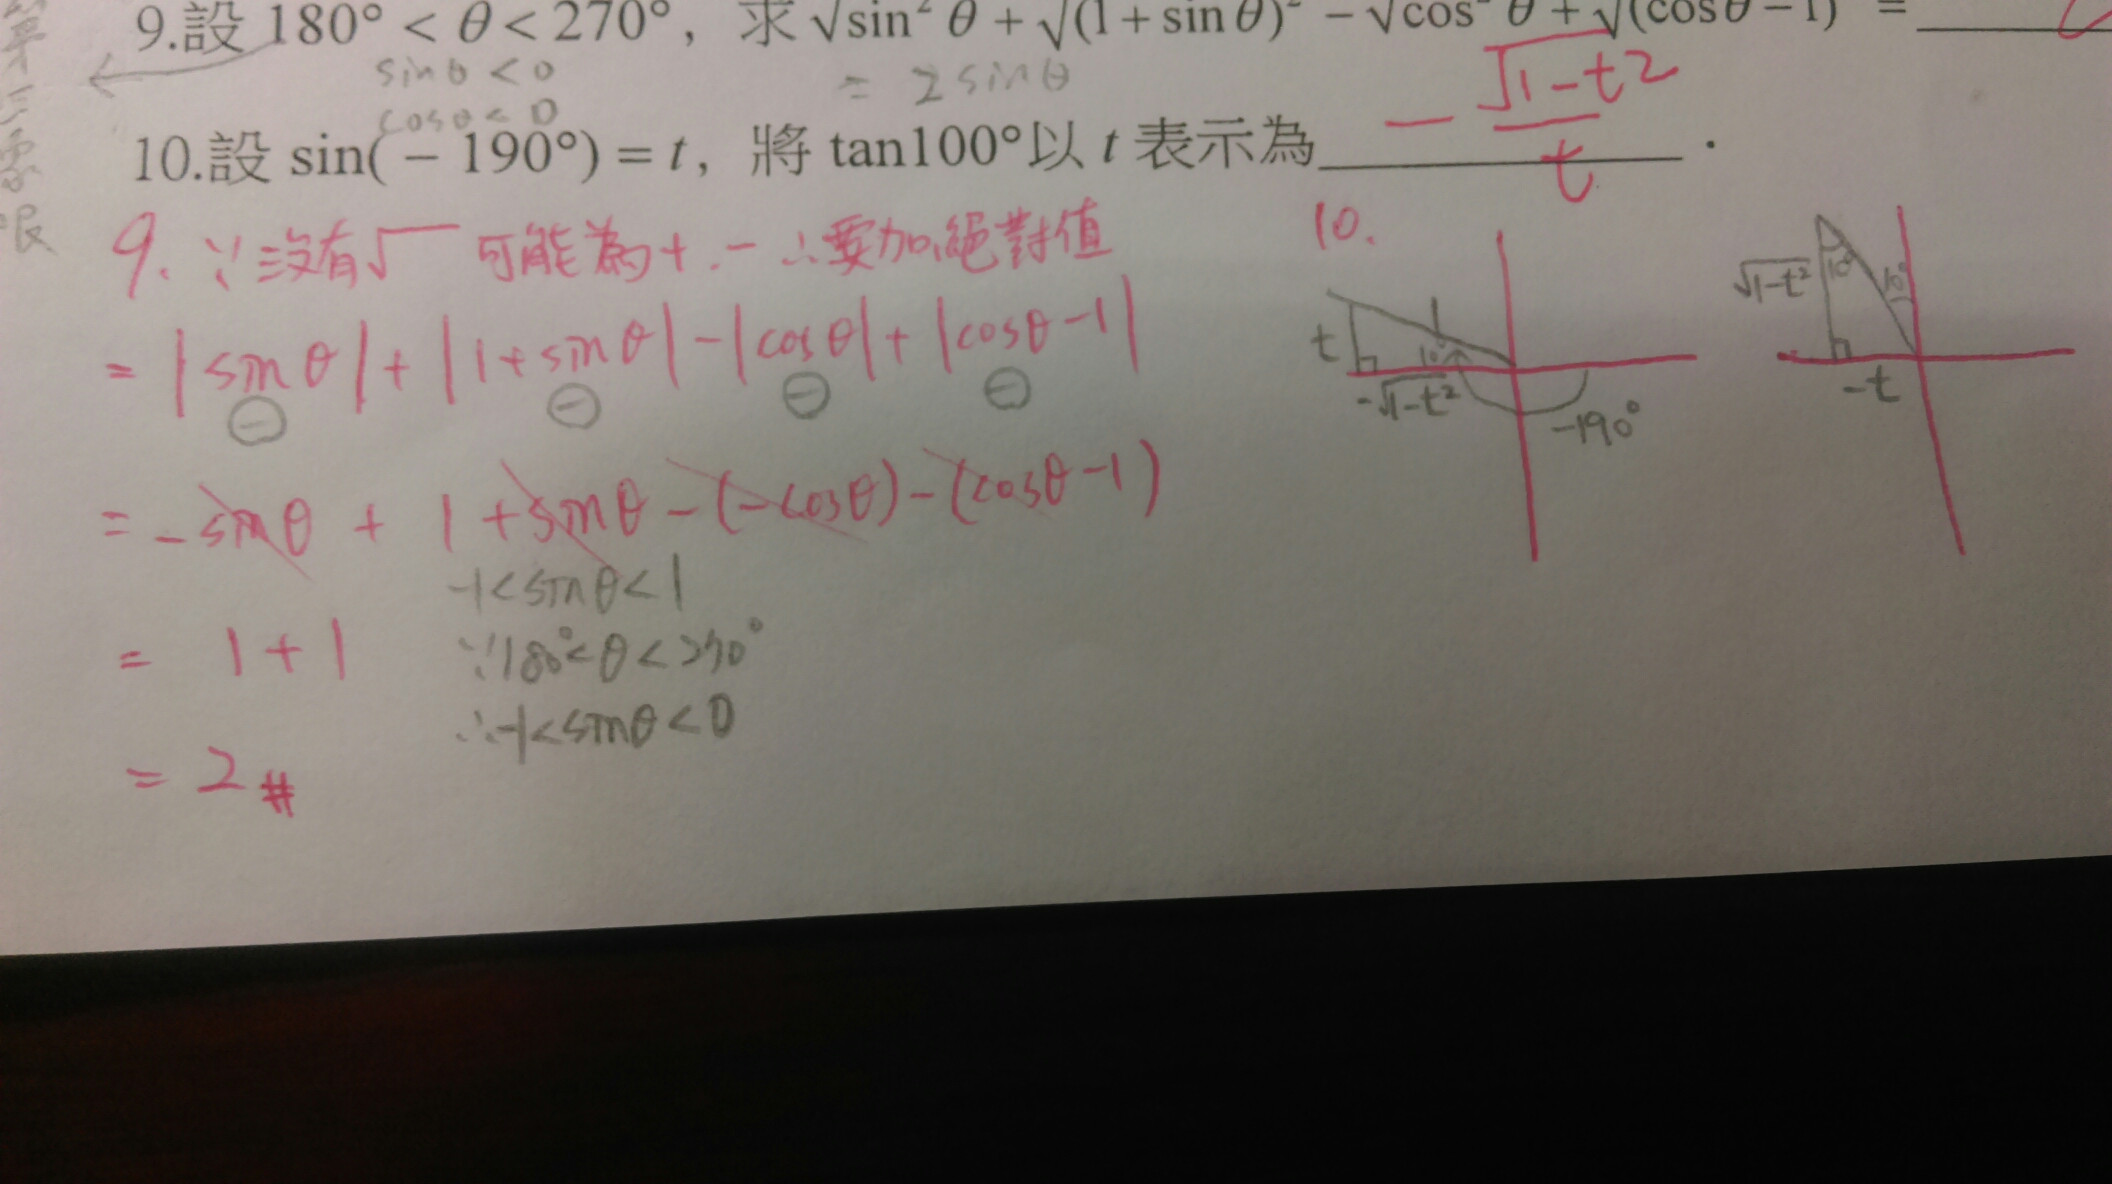 9.設 180° < θ < 270°, 求 √sin² θ + √(1 + sin θ)² − √cos² θ + √(cosθ − 1) =
sinθ < 0
cosθ < 0
= 2 sinθ
10.設 sin( − 190°) = t, 將 tan100°以 t 表示為 − √1−t² / t .
9. ∵ 沒有√ 可能為 + . − ∴ 要加絕對值
= |sinθ| + |1 + sinθ| − |cosθ| + |cosθ − 1|
⊖ ⊖ ⊖ ⊖
= − sinθ + 1 + sinθ − (−cosθ) − (cosθ − 1)
−1 < sinθ < 1
= 1 + 1
∵ 180° < θ < 270°
∴ −1 < sinθ < 0
= 2 #
10.
t
1
10°
−√1−t²
−190°
√1−t²
10°
10°
−t